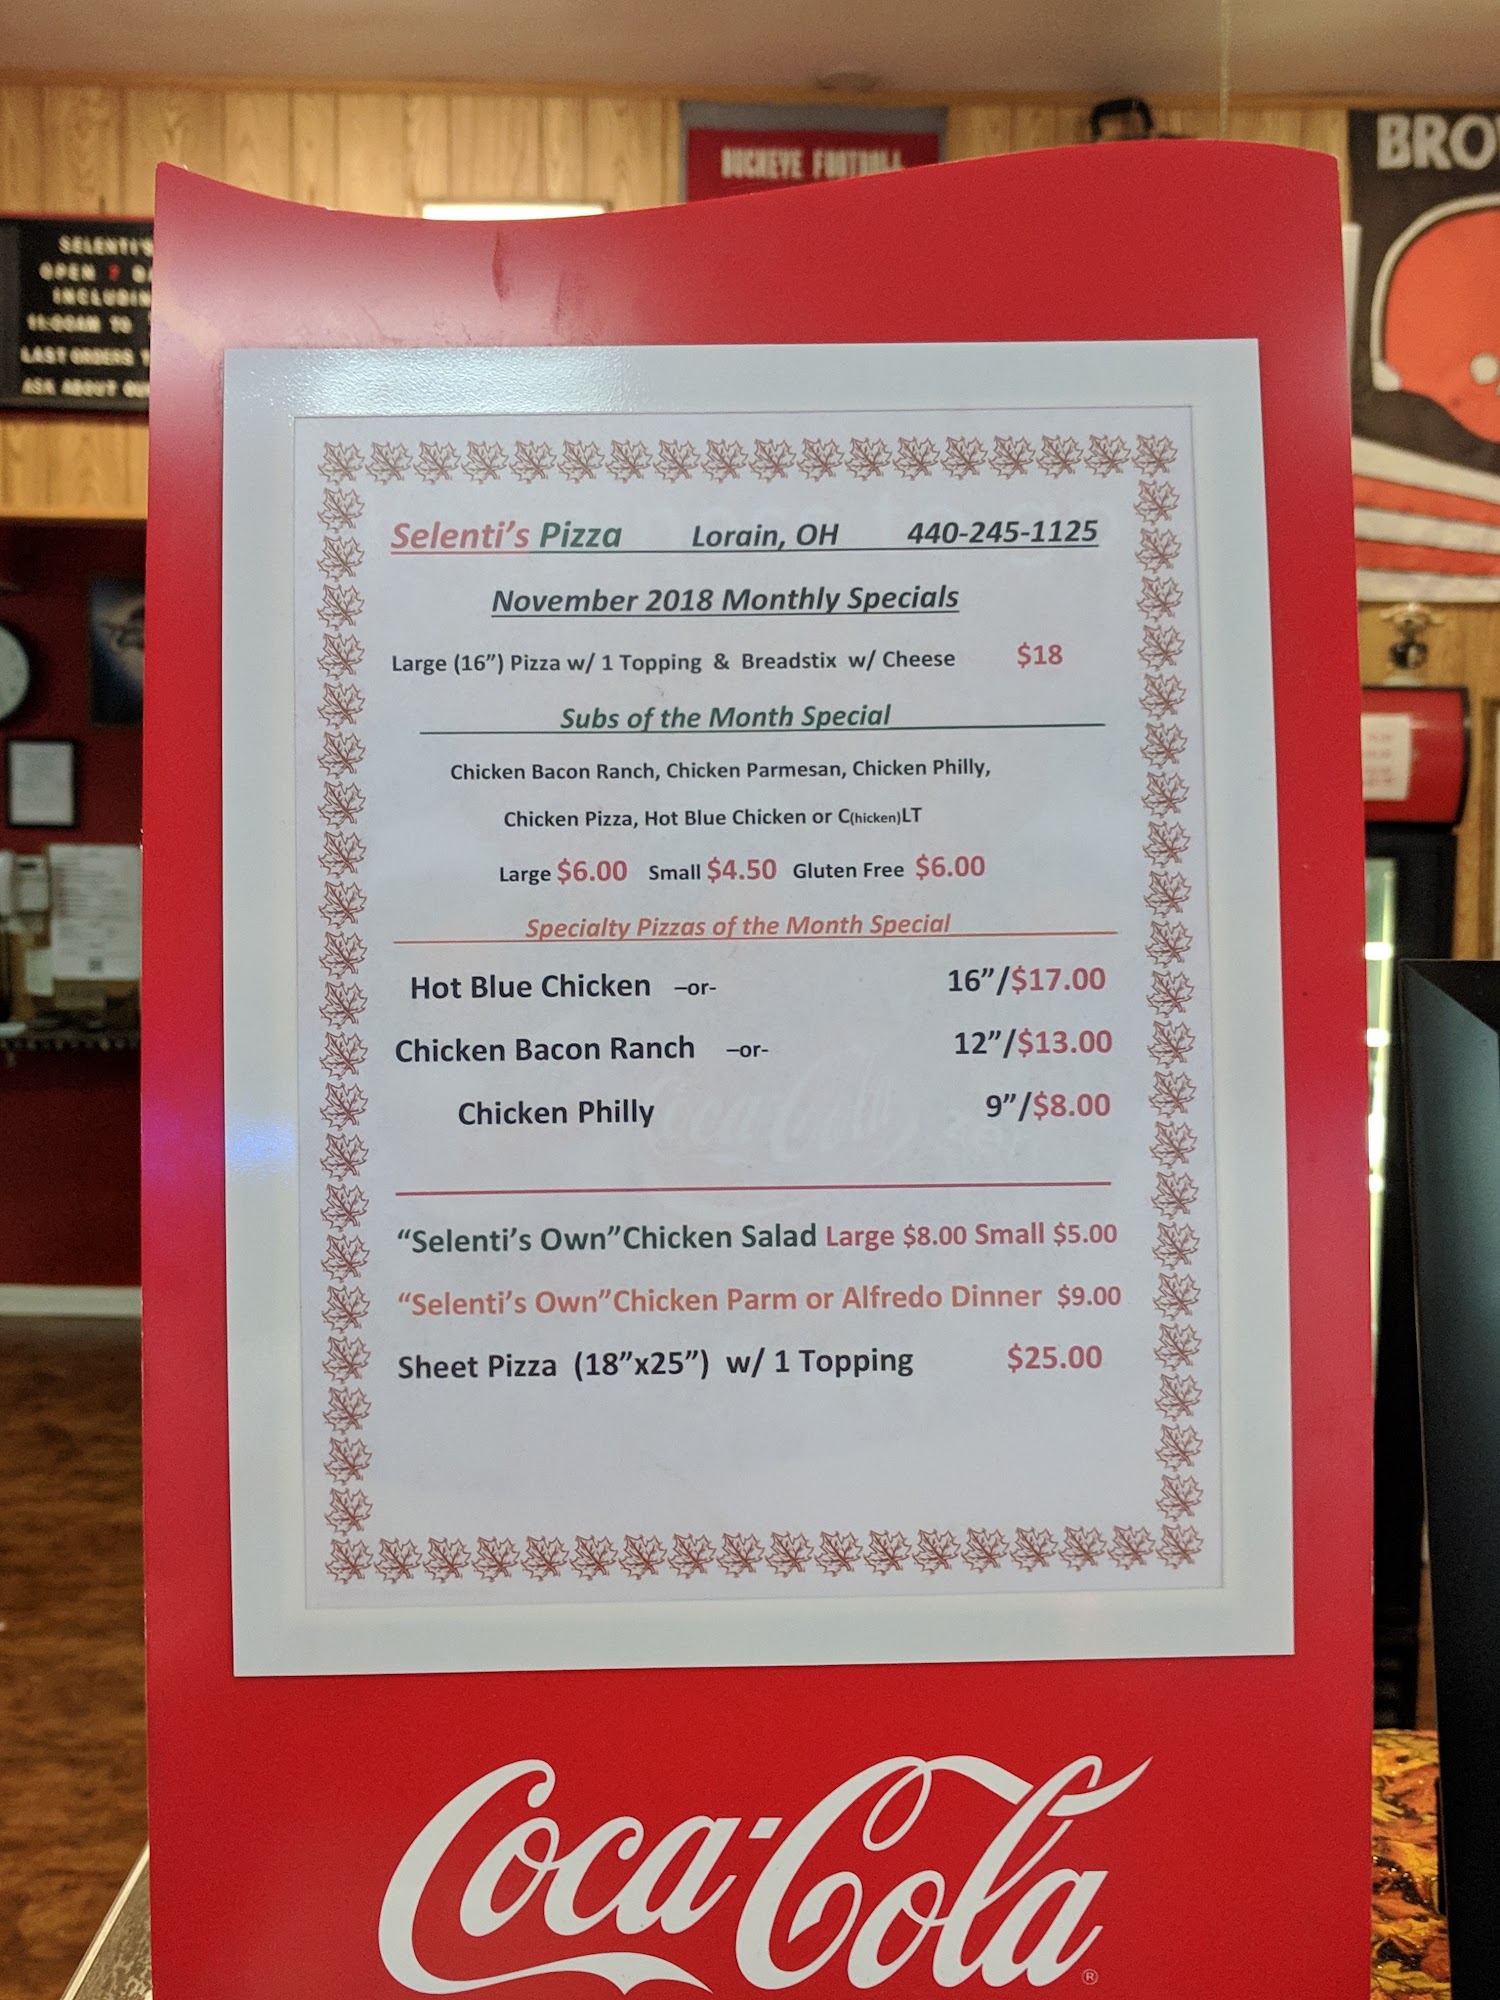 BUCKEYE FOOTBALL
BRO
SELENTI'S
OPEN 7
INCLUDIN
11:00AM TO
LAST ORDERS
ASK ABOUT
Selenti's Pizza Lorain, OH 440-245-1125
November 2018 Monthly Specials
Large (16”) Pizza w/ 1 Topping & Breadstix w/ Cheese $18
Subs of the Month Special
Chicken Bacon Ranch, Chicken Parmesan, Chicken Philly,
Chicken Pizza, Hot Blue Chicken or C(hicken)LT
Large $6.00 Small $4.50 Gluten Free $6.00
Specialty Pizzas of the Month Special
Hot Blue Chicken –or- 16”/$17.00
Chicken Bacon Ranch –or- 12”/$13.00
Chicken Philly 9”/$8.00
“Selenti's Own”Chicken Salad Large $8.00 Small $5.00
“Selenti's Own”Chicken Parm or Alfredo Dinner $9.00
Sheet Pizza (18”x25”) w/ 1 Topping $25.00
Coca-Cola ®